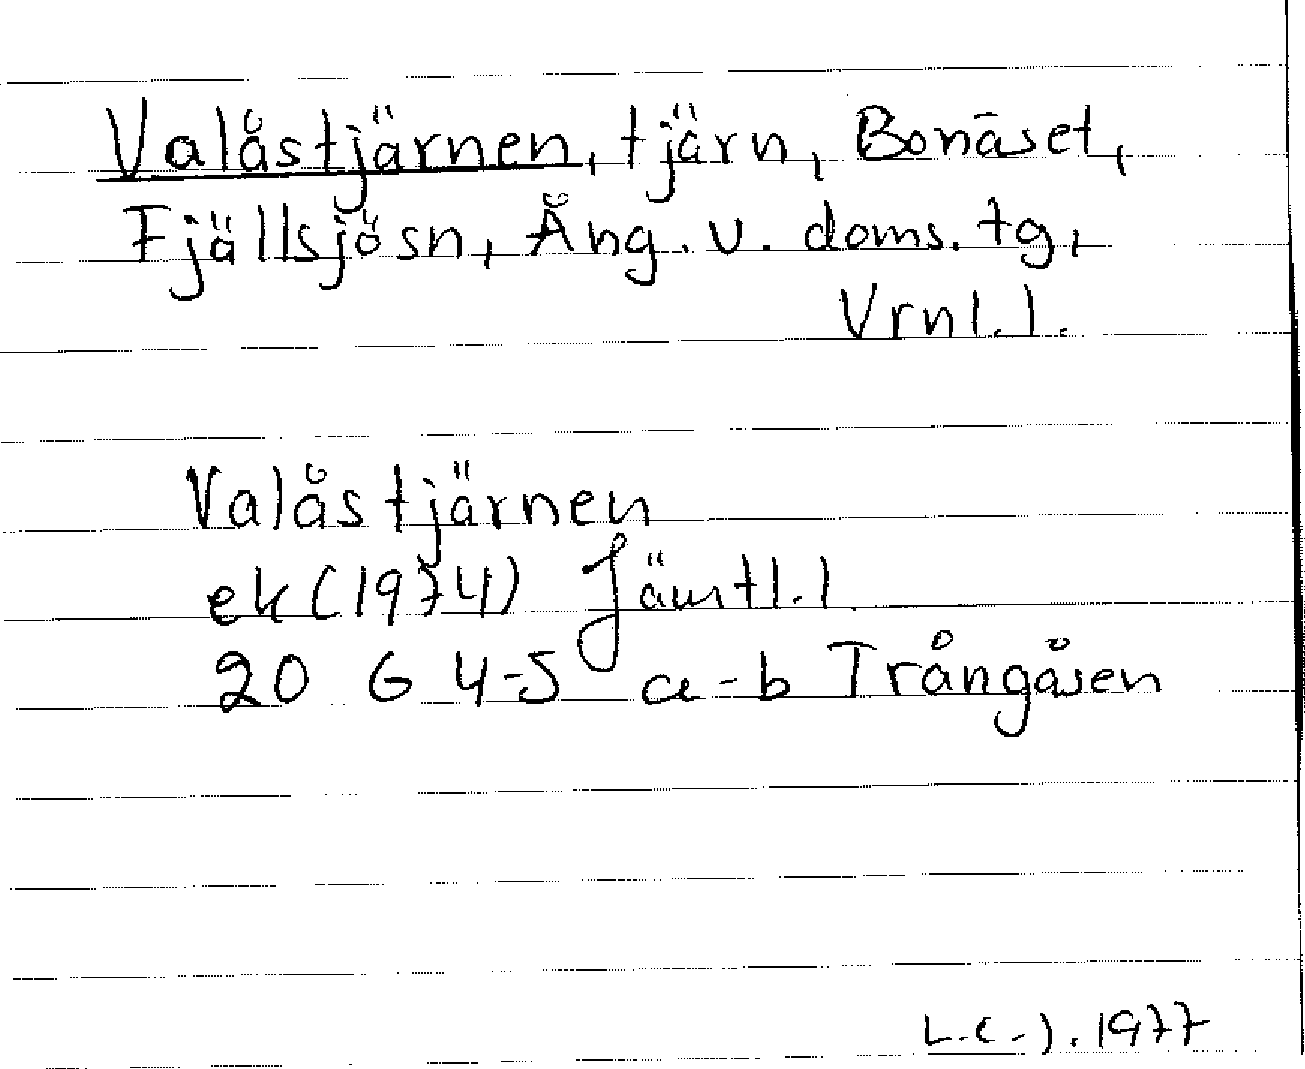 Valåstjärnen, tjärn, Bonäset,
Fjällsjösn, Ång. v. doms. tg,
Vrnl. l.
Valåstjärnen
ek (1974) Jämtl. l
20 G 4-5 a-b Trångåsen
L. (-). 1977